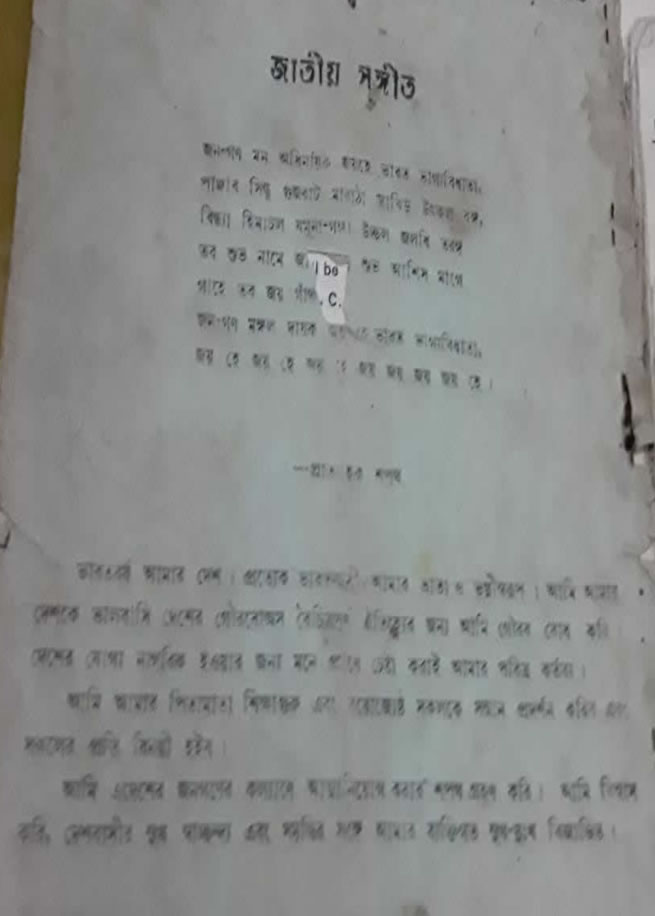 জাতীয় সঙ্গীত
জনগণ মন অধিনায়ক জয়হে ভারত ভাগ্যবিধাতা,
পাঞ্জাব সিন্ধু গুজরাট মারাঠা দ্রাবিড় উৎকল বঙ্গ,
বিন্ধ্য হিমাচল যমুনা-গঙ্গা উচ্ছল জলধি তরঙ্গ
তব শুভ নামে শুভ আশিস মাগে
l bo
গাহে তব জয়
. C.
জন-গণ মঙ্গল দায়ক ভারত ভাগ্যবিধাতা,
জয় হে জয় হে জয় হে জয় জয় জয় জয় হে।
শপথ
ভারতবর্ষ আমার দেশ। প্রত্যেক ভারতবাসী আমার ভ্রাতা ও ভগ্নীস্বরূপ। আমি আমার
দেশকে ভালবাসি দেশের গৌরবোজ্জল বৈচিত্র্যপূর্ণ ঐতিহ্যের জন্য আমি গৌরব বোধ করি।
দেশের যোগ্য নাগরিক হওয়ার জন্য মনে প্রাণে চেষ্টা করাই আমার পবিত্র কর্তব্য।
আমি আমার পিতামাতা শিক্ষক এবং বয়োজ্যেষ্ঠ সকলকে সম্মান প্রদর্শন করিব এবং
সকলের প্রতি বিনয়ী হইব।
আমি এদেশের জনগণের কল্যাণে আত্মনিয়োগ করার শপথ গ্রহণ করি। আমি বিশ্বাস
করি, দেশবাসীর সুখ স্বাচ্ছন্দ্য এবং সমৃদ্ধির সঙ্গে আমার ব্যক্তিগত সুখ-দুঃখ বিজড়িত।